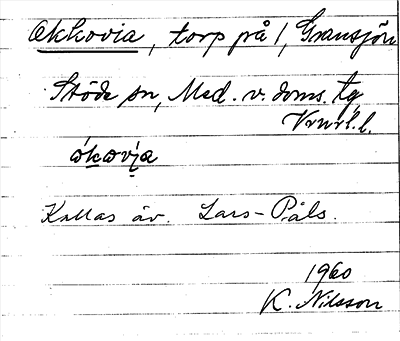 Akkovia, torp på 1, Gransjön
Stöde sn, Med. v. doms. tg
Vrnrl.l.
ákovi̯a
Kallas äv. Lars-Påls.
1960
K. Nilsson